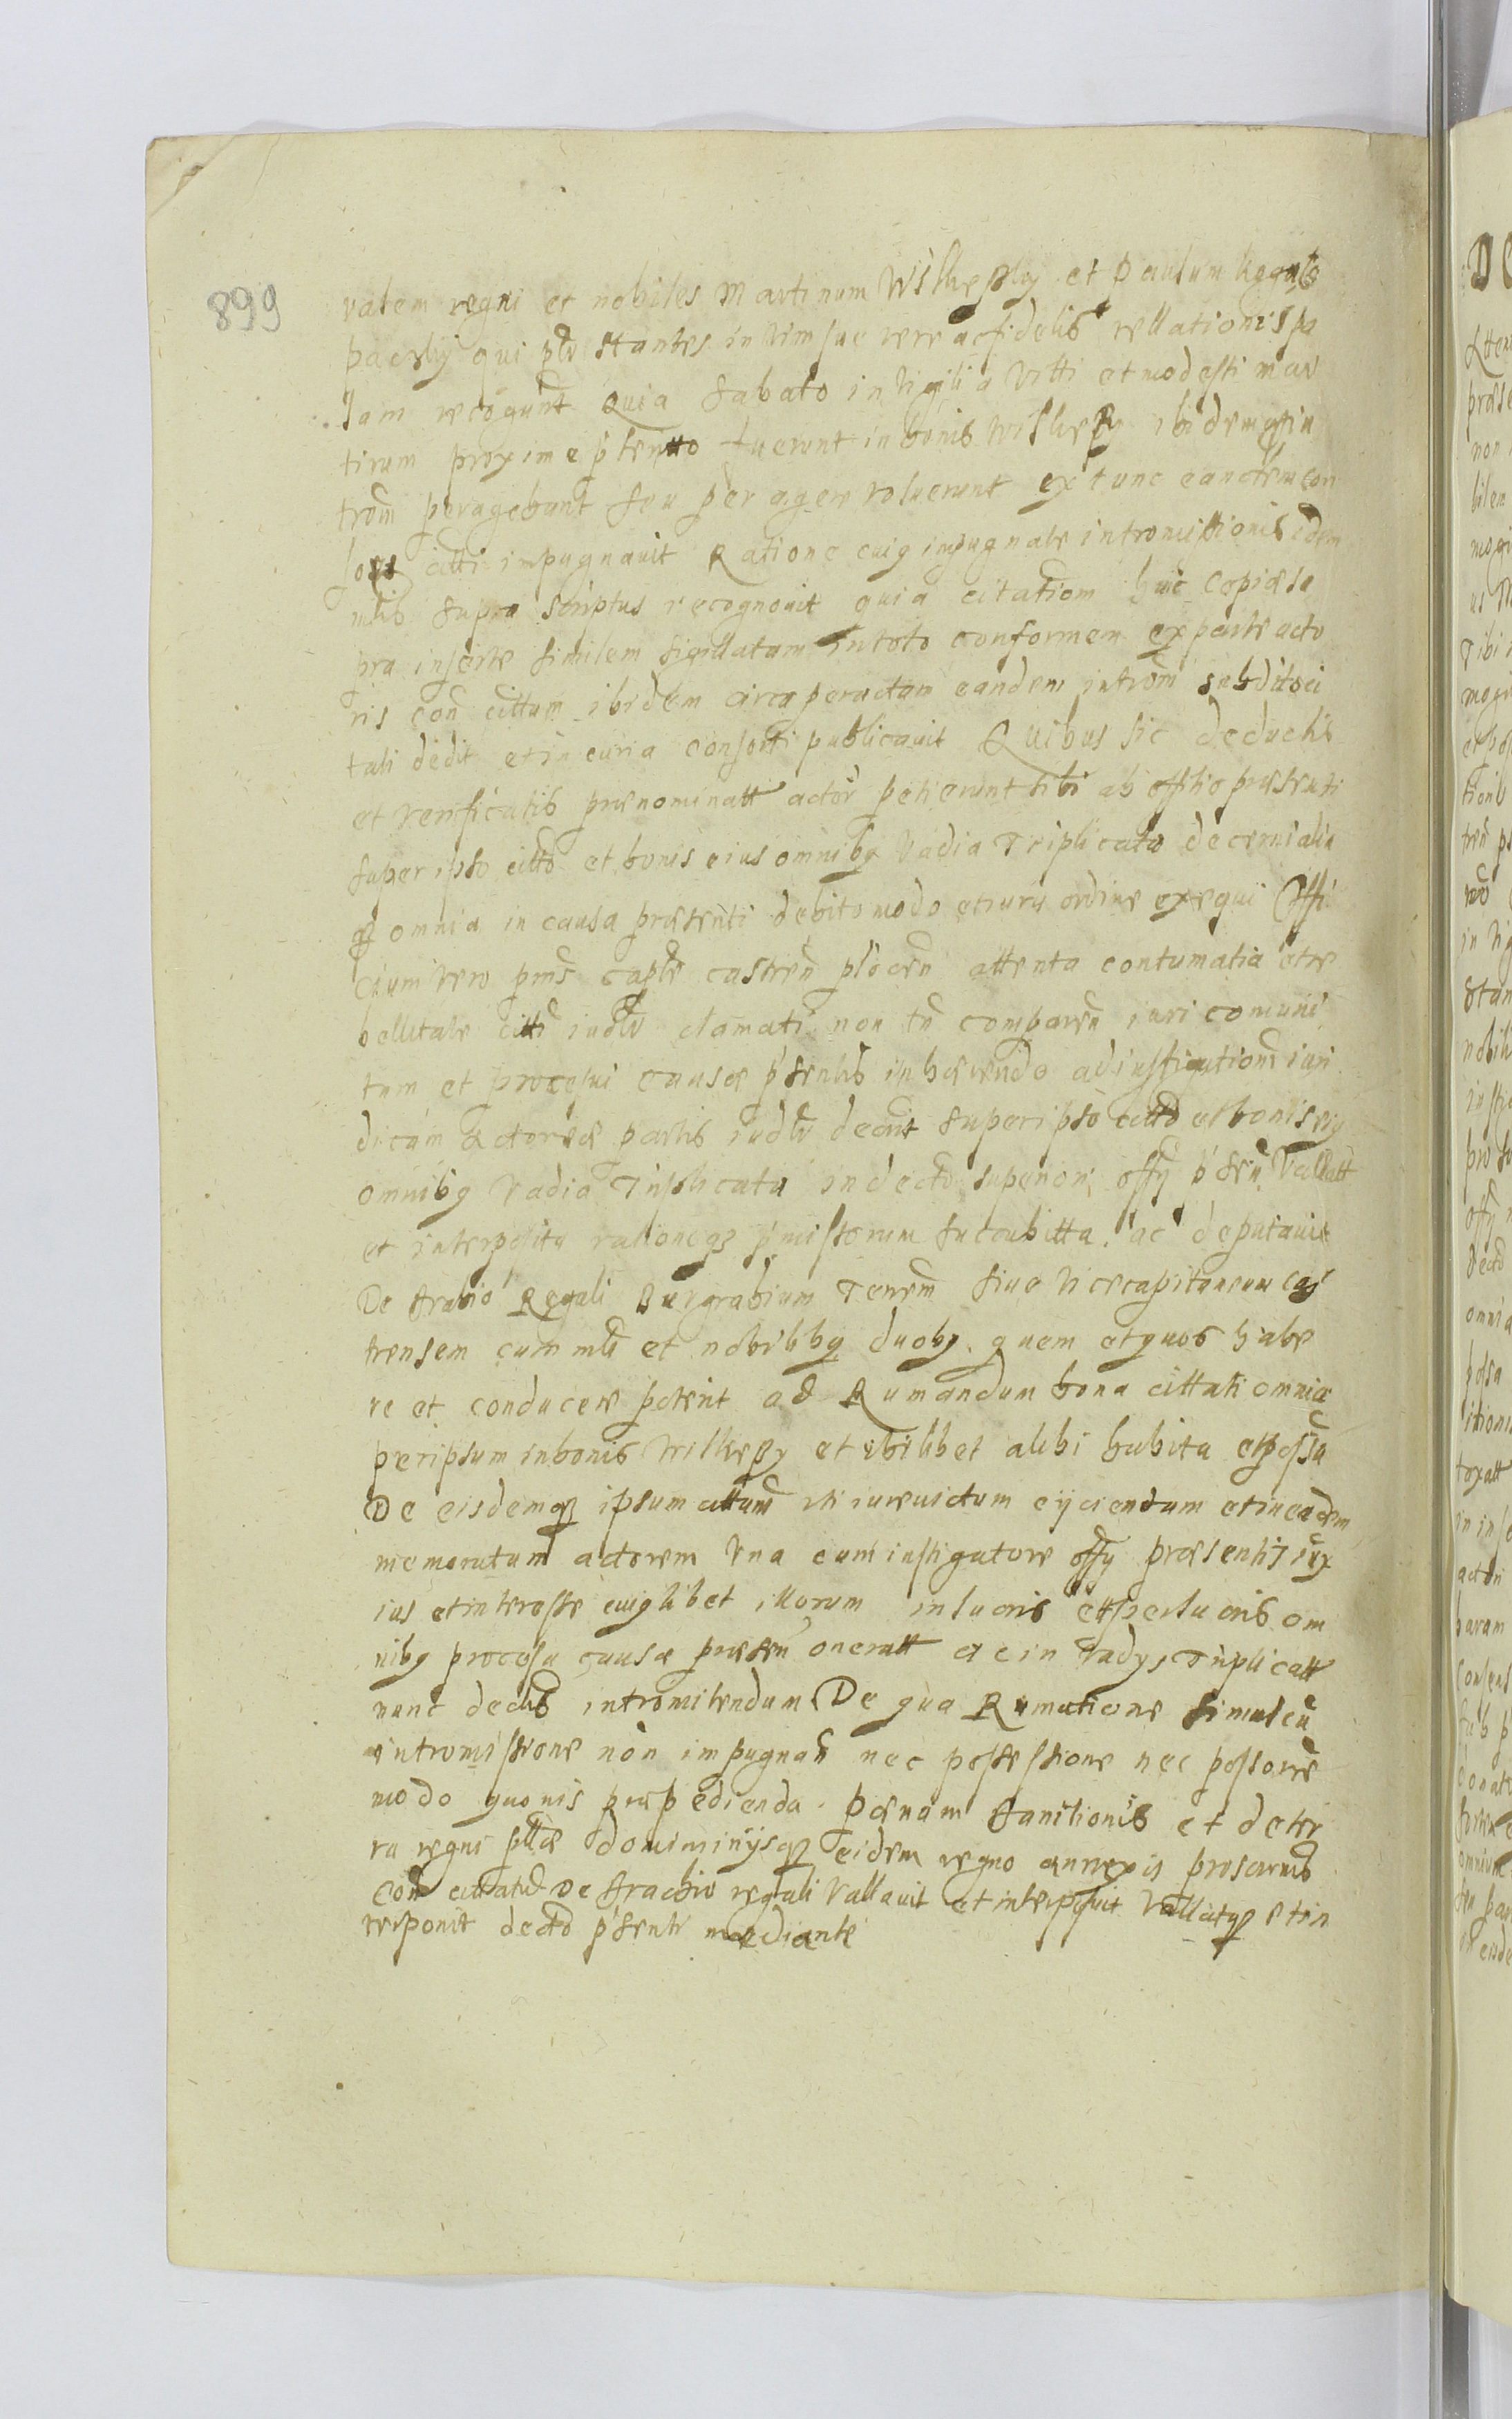 899
ralem regni et nobiles Martinum Wilkęski et Paulum
qui stantes in vim suæ veræ ac fidelis rellationis pa
lam recogūnt Quia sabato in vigilia Vitti et modesti mar
tirum proxime pteritto fuerunt in bonis ibidemque in
trom̄ peragebant seu peragere voluerunt extunc eandem con
sors citti impugnauit Ratione cuiq impugnatæ intromissionis idem
mlis supra scriptus recognouit quia citationem huic Copiæ su
pra insertæ similem sigillatam in toto conformem ex parte acto
ris con cittum ibidem circa peractam eandem introm̄ subdito ci
tati dedit et in curia consorti publicauit Quibus sic deductis
et verificatis prænominatt actor petierunt sibi ab officio præsenti
super ipso citto et bonis eius omnibq Vadia Triplicata decerni alia
q omnia in causa præsenti debito modo et iuris ordine exequi Offi
cium vero pn̄s captle castren̄ plocen̄ attenta contumatia et re
bellitate citti iudlr clamati non tn̄ comparen̄ iuri comuni
tum et procesui causæ p̄sentis inhærendo ad iustigationem iuri
dicam Actoreæ partis iudlr decrit super ipso citto et bonis eiq
omnibq Vadia Triplicata in decto superiori offy p̄sen̄ vallatt
et interposita rationeqz p̄missorum sucubitta ac deputauit
De srabio Regali Burgrabium Tenem̄ siue Vicecapitaneum cas
trensem cum mli et nobilibbq duobq quem et quos habe
re et conducere poterit ad Rumandum bona cittati omnia
per ipsum in bonis Wilkęsy et ibilibet alibi habita et possa
De eisdemq ipsum cittum vti iureuictum eyciendum et in eadem
memoratum actorem Vna cum instigatore offy præsentis iux
ius et interesse cuiqlibet illorum in lucris et perlucris om
nibq procesu causæ præsen̄ oneratt ac in vadys Triplicatt
nunc dectis intromitendum De qua Rumatione simul cū
intromissione non impugnan̄ nec possessione nec possore
modo quouis præpedienda. Pænam banitionis et de ter
ra regni pllæ dominiiysq eidem regno annexis proscrnis
Con cittatū de srachio regali Vallauit et interposuit Vallatq et in
terponit decto p̄senti mediante